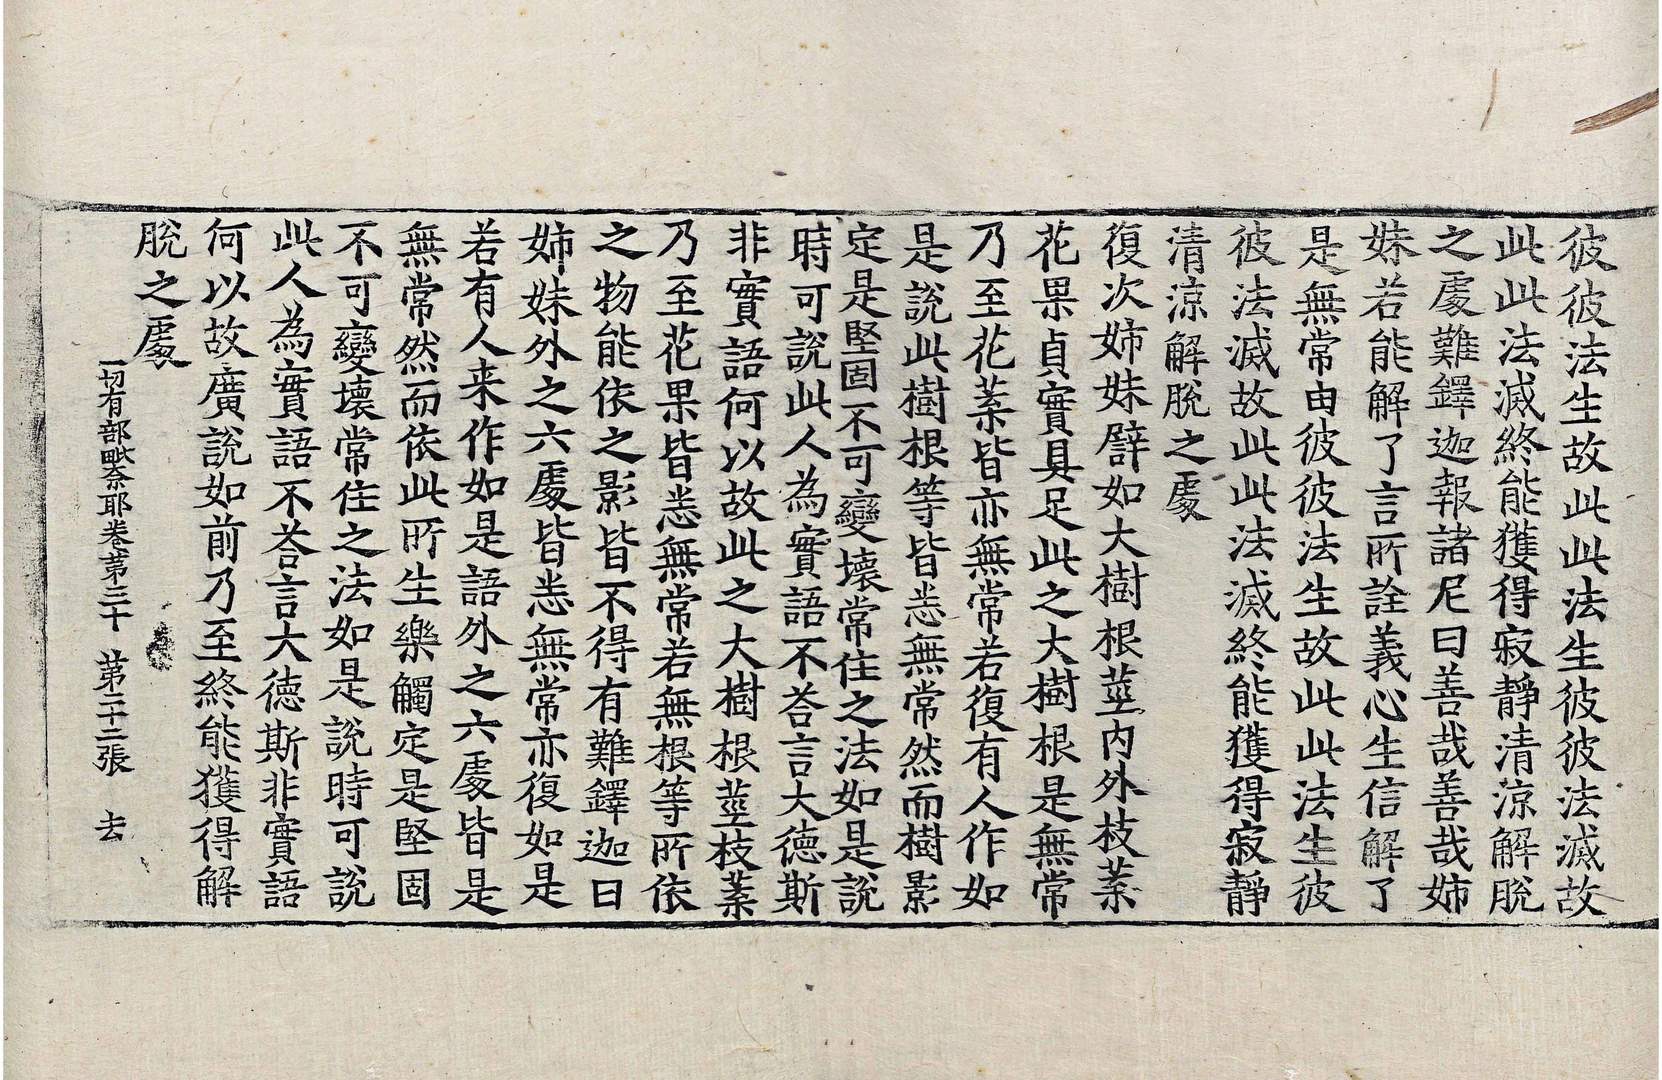 彼彼法生故此此法生彼彼法滅故
此此法滅終能獲得寂靜清涼解脫
之處難鐸迦報諸尼曰善哉善哉姉
妹若能解了言所詮義心生信解了
是無常由彼彼法生故此此法生彼
彼法滅故此此法滅終能獲得寂靜
清涼解脫之處
復次姉妹譬如大樹根莖內外枝葉
花果貞實具足此之大樹根是無常
乃至花葉皆亦無常若復有人作如
是說此樹根等皆悉無常然而樹影
定是堅固不可變壞常住之法如是說
時可說此人為實語不荅言大徳斯
非實語何以故此之大樹根莖枝葉
乃至花果皆悉無常若無根等所依
之物能依之影皆不得有難鐸迦曰
姉妹外之六處皆悉無常亦復如是
若有人来作如是語外之六處皆是
無常然而依此所生樂觸定是堅固
不可變壞常住之法如是說時可說
此人為實語不荅言大徳斯非實語
何以故廣說如前乃至終能獲得解
脫之處
一切有部毗奈耶卷第三十 第二十二張 去